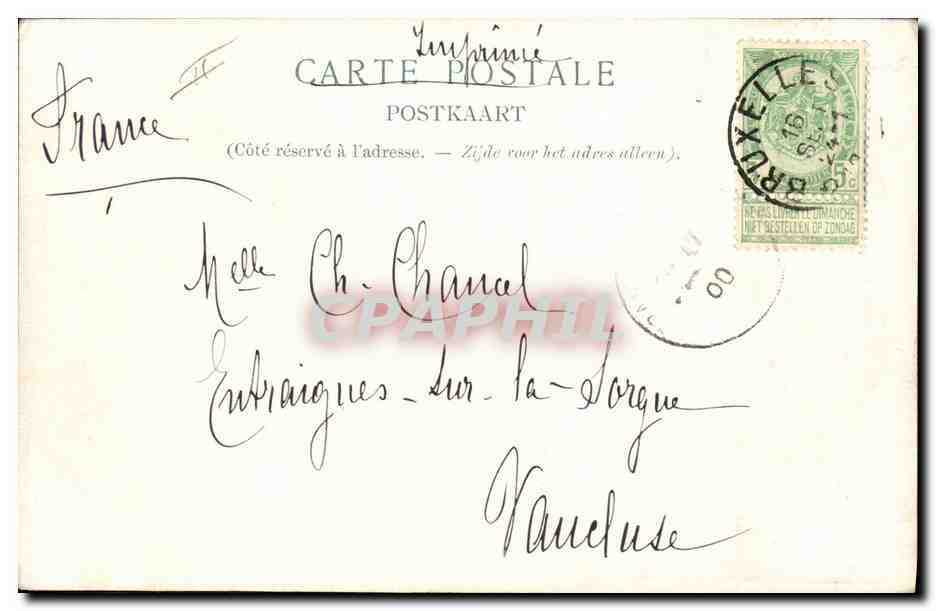 Imprimé
CARTE POSTALE
POSTKAART
(Côté réservé à l'adresse. — Zijde voor het adres alleen).
France
BRUXELLES
16
5 C
NE PAS LIVRER LE DIMANCHE
NIET BESTELLEN OP ZONDAG
00
Melle Ch. Chancel
CPAPHIL
Entraigues-sur-la-Sorgue
Vaucluse